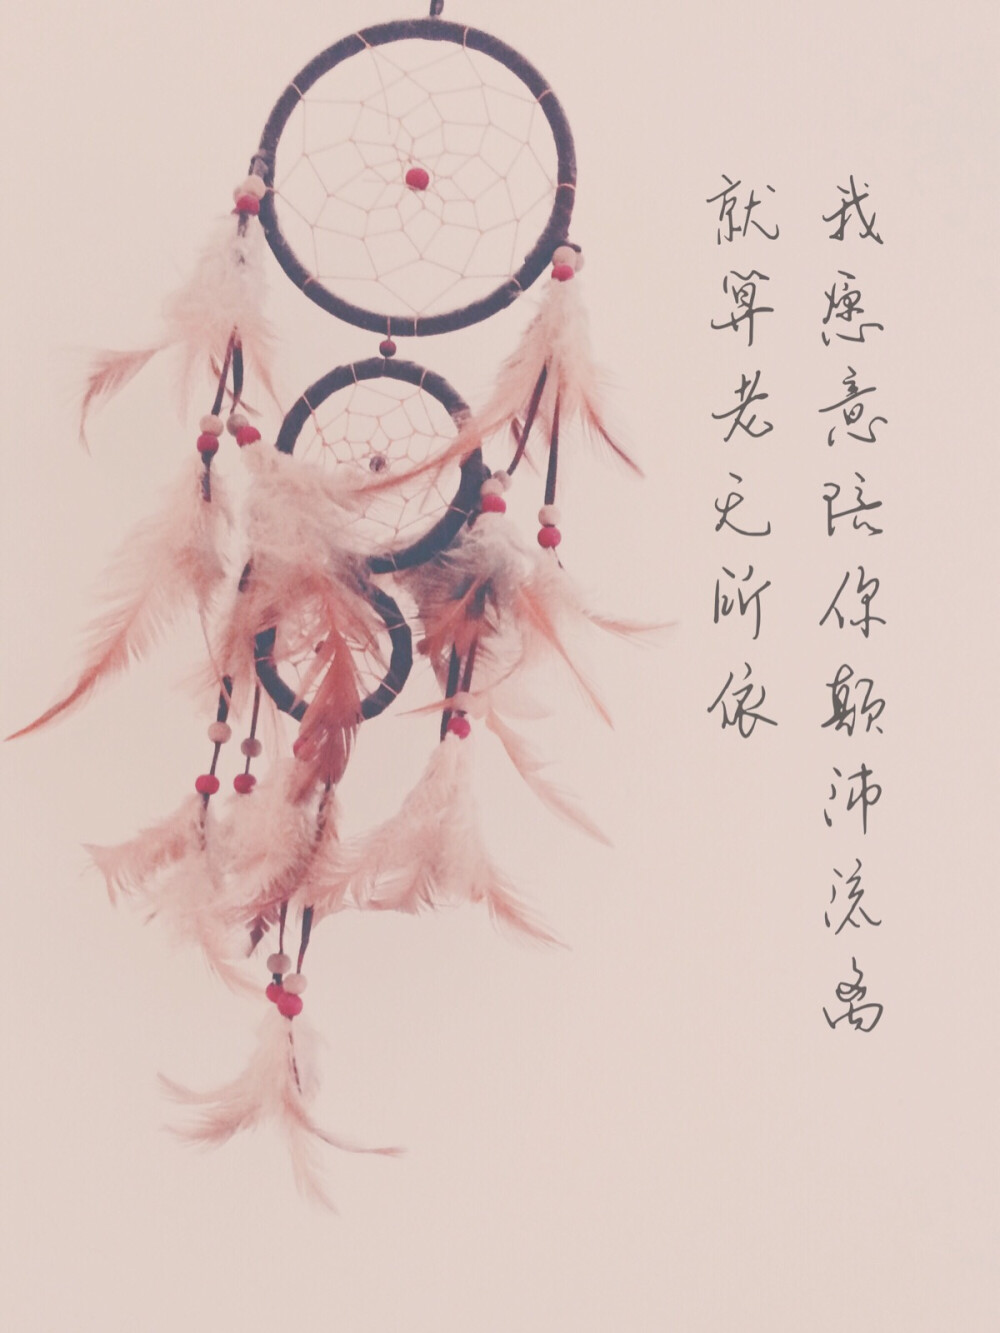 我愿意陪你颠沛流离
就算老无所依